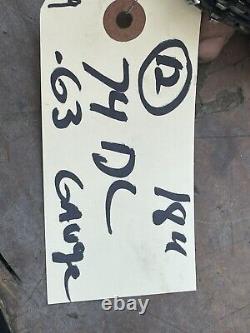 12
74 DL
.63 GAUGE
184